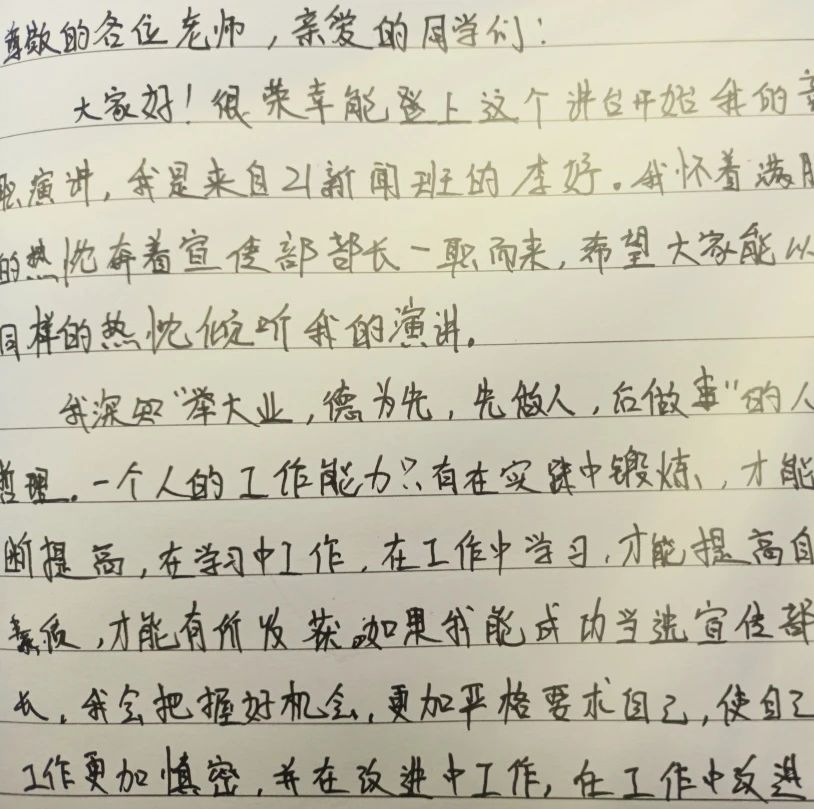 尊敬的各位老师，亲爱的同学们：
大家好！很荣幸能登上这个讲台开始我的竞
职演讲，我是来自21新闻班的李好。我怀着满
的热忱奔着宣传部部长一职而来，希望大家能以
同样的热忱倾听我的演讲。
我深知“举大业，德为先，先做人，后做事”的人
哲理。一个人的工作能力只有在实践中锻炼，才能
断提高，在学习中工作，在工作中学习，才能提高自
素质，才能有所收获。如果我能成功当选宣传部
长，我会把握好机会，更加严格要求自己，使自己
工作更加慎密，并在改进中工作，在工作中改进